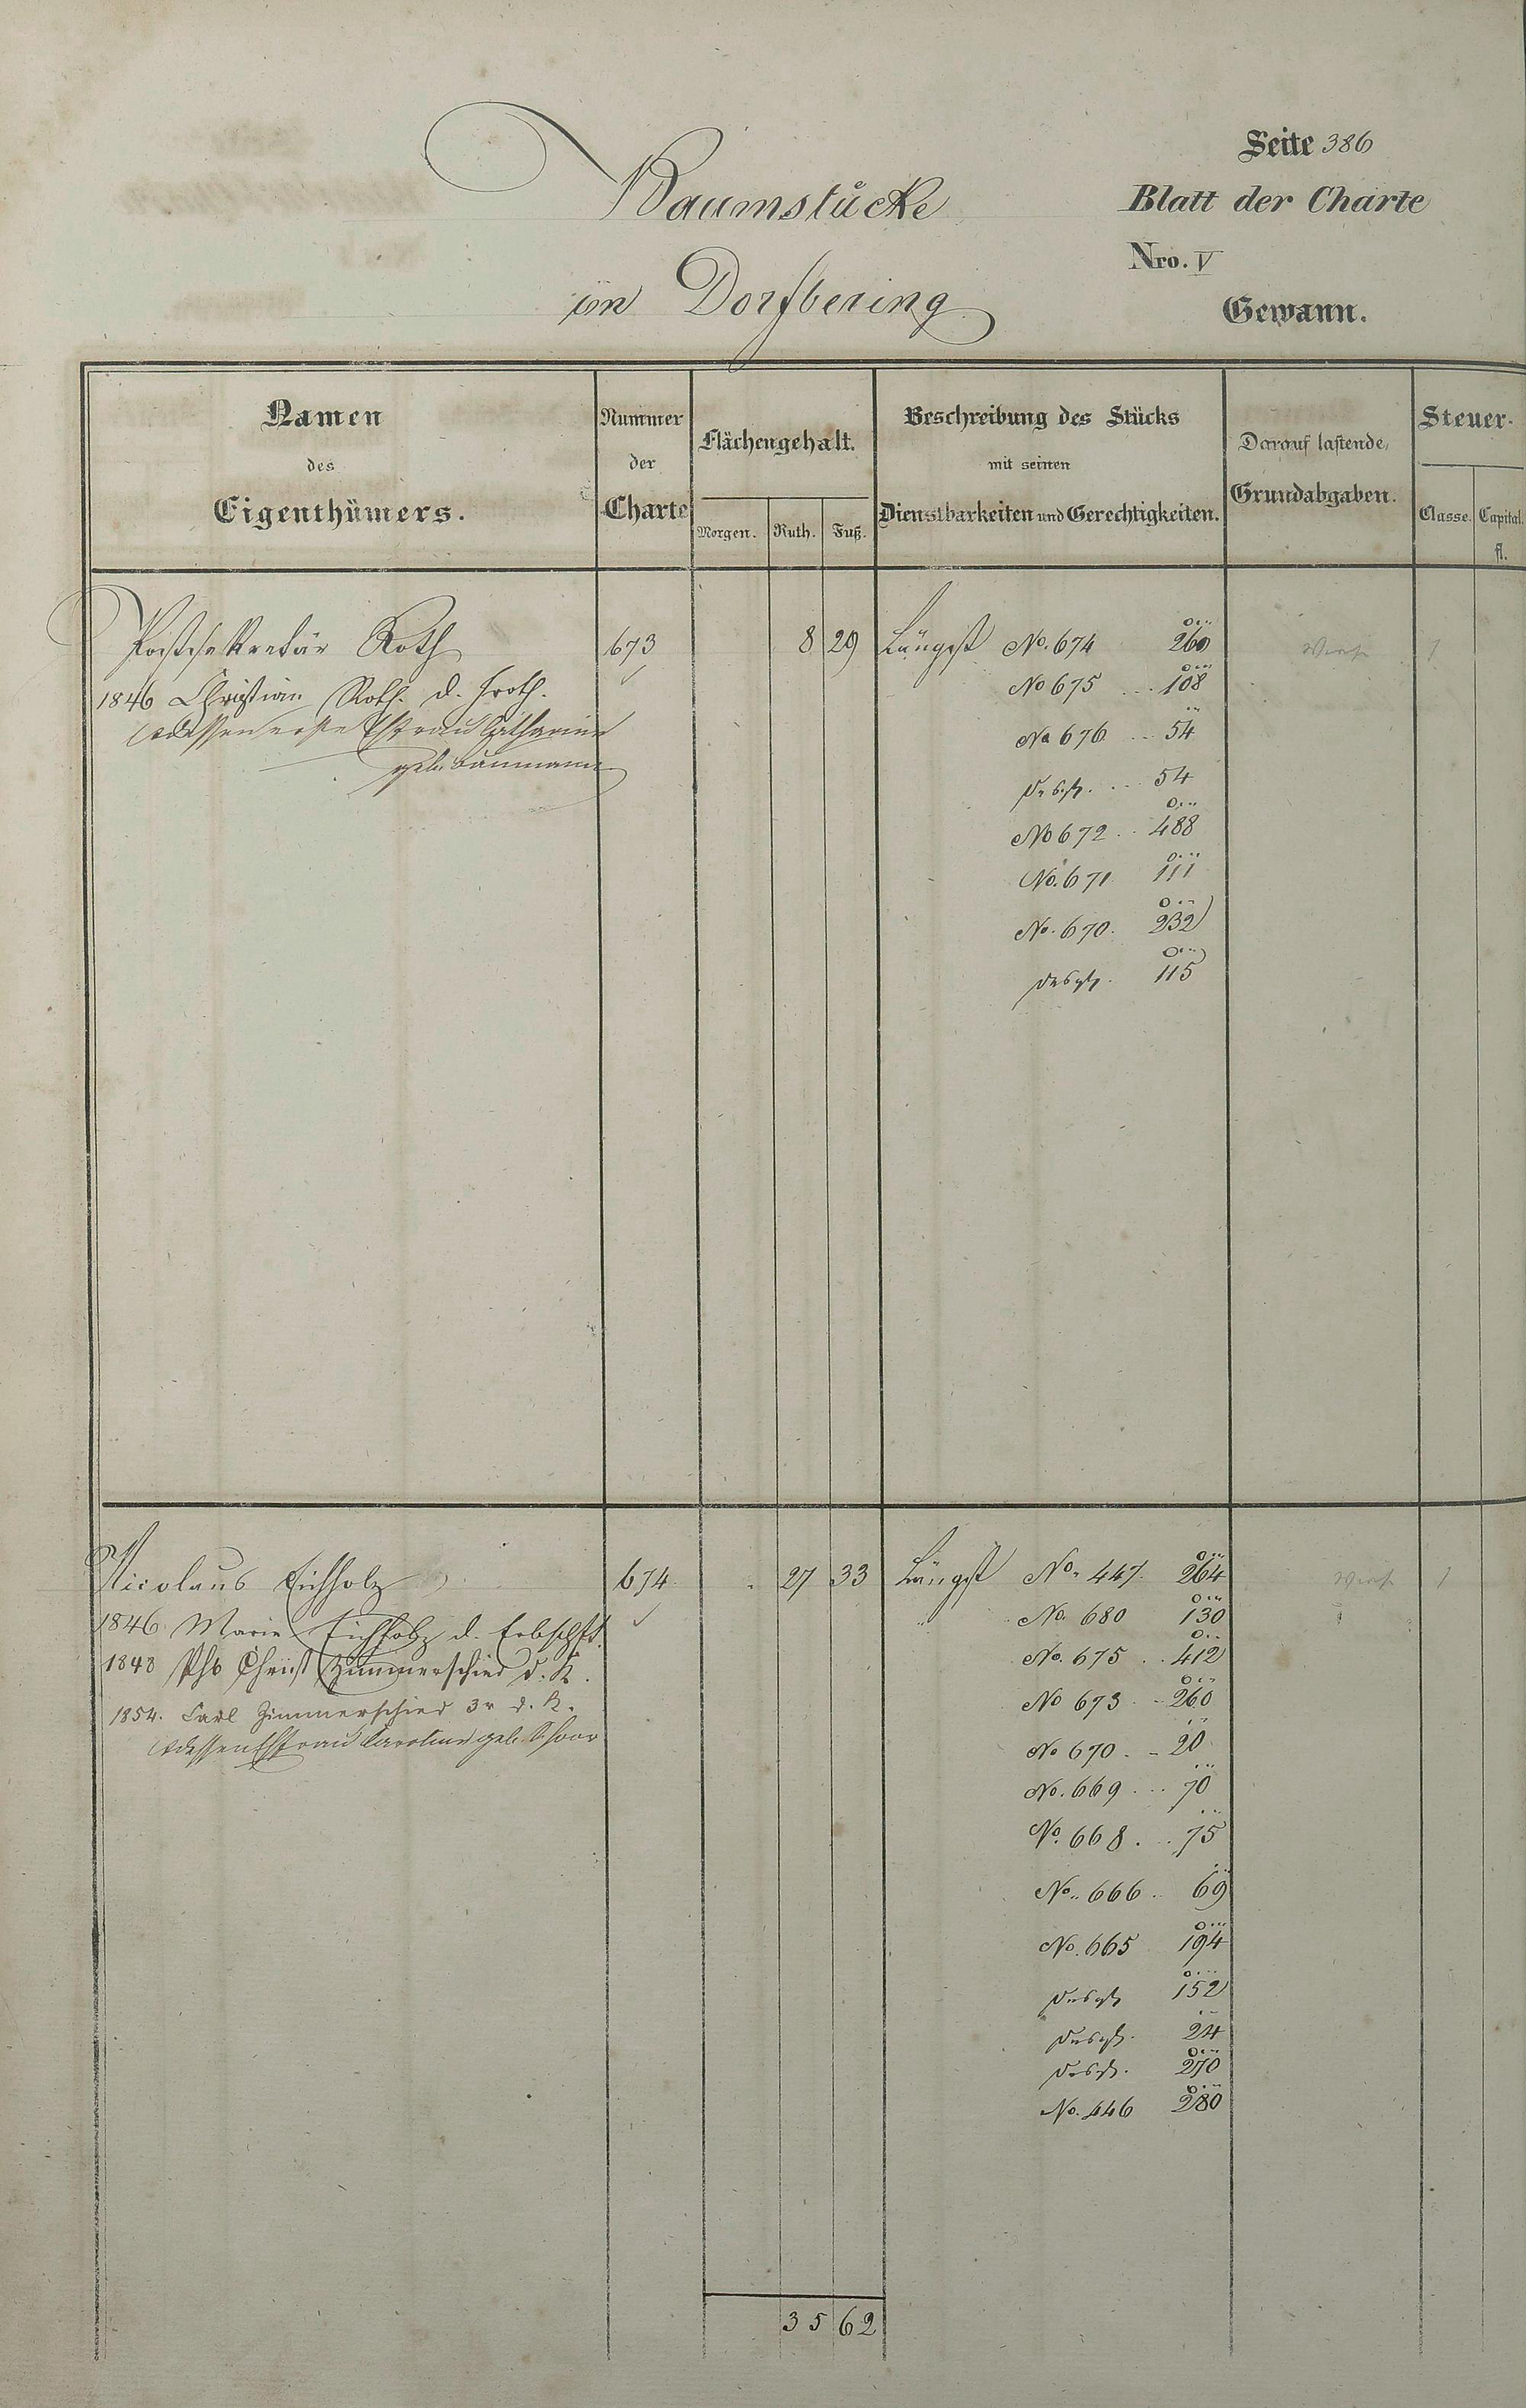 Seite 386
Baumstücke
Blatt der Charte
Nro. V
im Dorfbering
Gewann.
Namen des Eigenthümers.
Nummer der Charte
Flächengehalt.
Morgen. Ruth. Fuß.
Beschreibung des Stücks mit seinen Dienstbarkeiten und Gerechtigkeiten.
Darauf lastende Grundabgaben.
Steuer-
Classe. Capital.
fl.
Postsekretär Roth 673 8 29 Längst No. 674 260
1846 Christian Roth. d. No 675 108
dessen erste Ehefrau Catharine No 676 54
geb. Baumann
desgl. 54
No 672 488
No. 671 111
No. 670. 232
desgl. 115
Nicolaus Eichholz 674. 27 33 Längst No. 447. 264 1
1846. Marie Eichholz d. Erbschft. No. 680 130
1848 Phb Christ Zimmerschied d. K. No. 675 412
1854. Carl Zimmerschied 3r d. K. No 673 260
dessen Ehefrau Caroline geb. No 670 20
No. 669 70
No. 668 75
No. 666 69
No. 665 194
desgl 152
desgl. 24
desgl. 270
No. 446 280
35 62